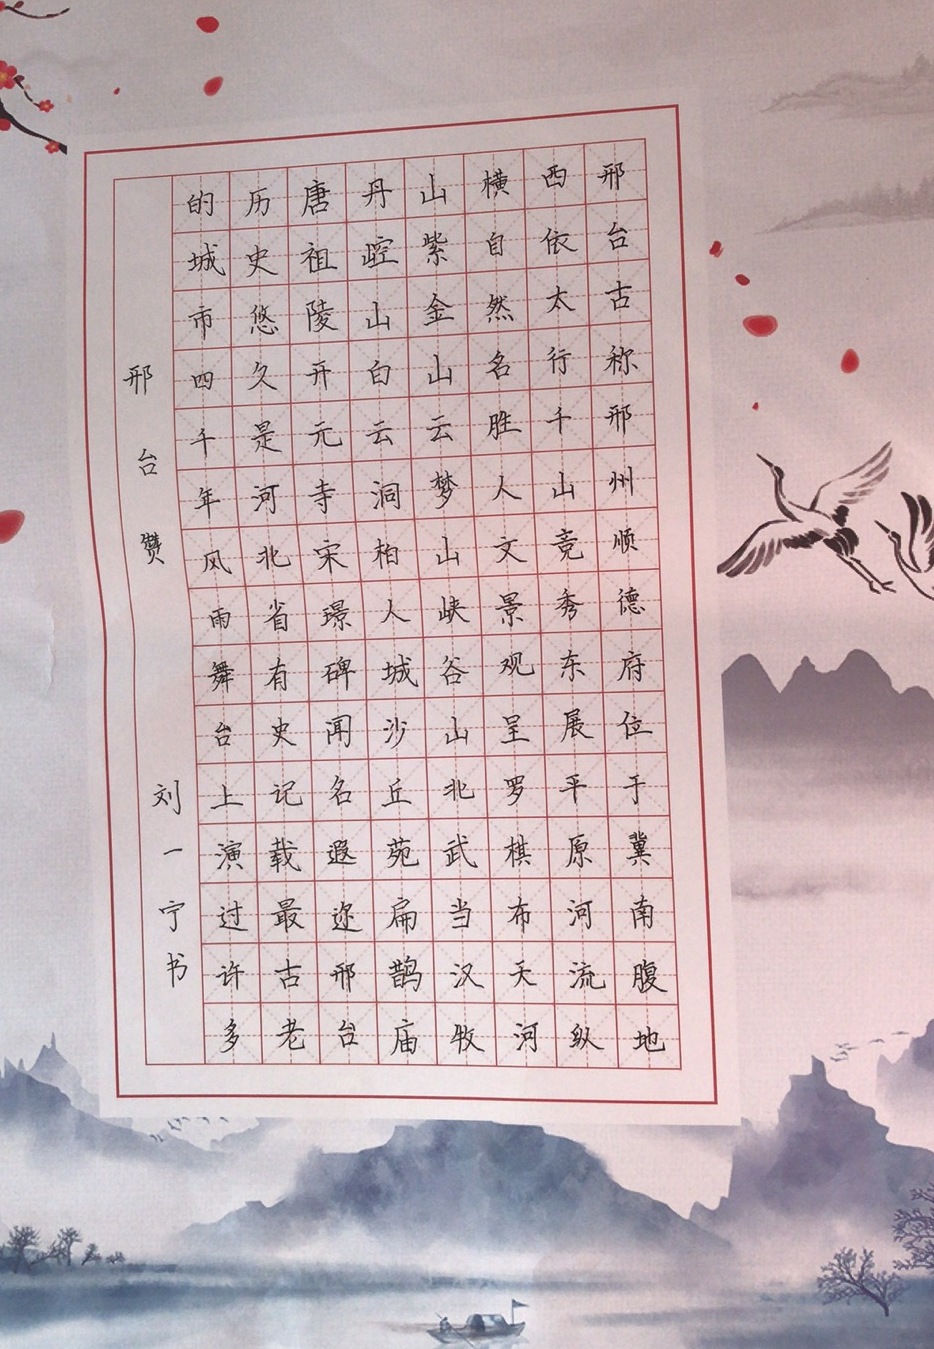 邢台古称邢州顺德府位于冀南腹地
西依太行千山竞秀东展平原河流纵
横自然名胜人文景观呈罗棋布天河
山紫金山云梦山峡谷山北武当汉牧
丹崆山白云洞柏人城沙丘苑扁鹊庙
唐祖陵开元寺宋璟碑闻名遐迩邢台
历史悠久是河北省有史记载最古老
的城市四千年风雨舞台上演过许多
邢台赞 刘一宁书